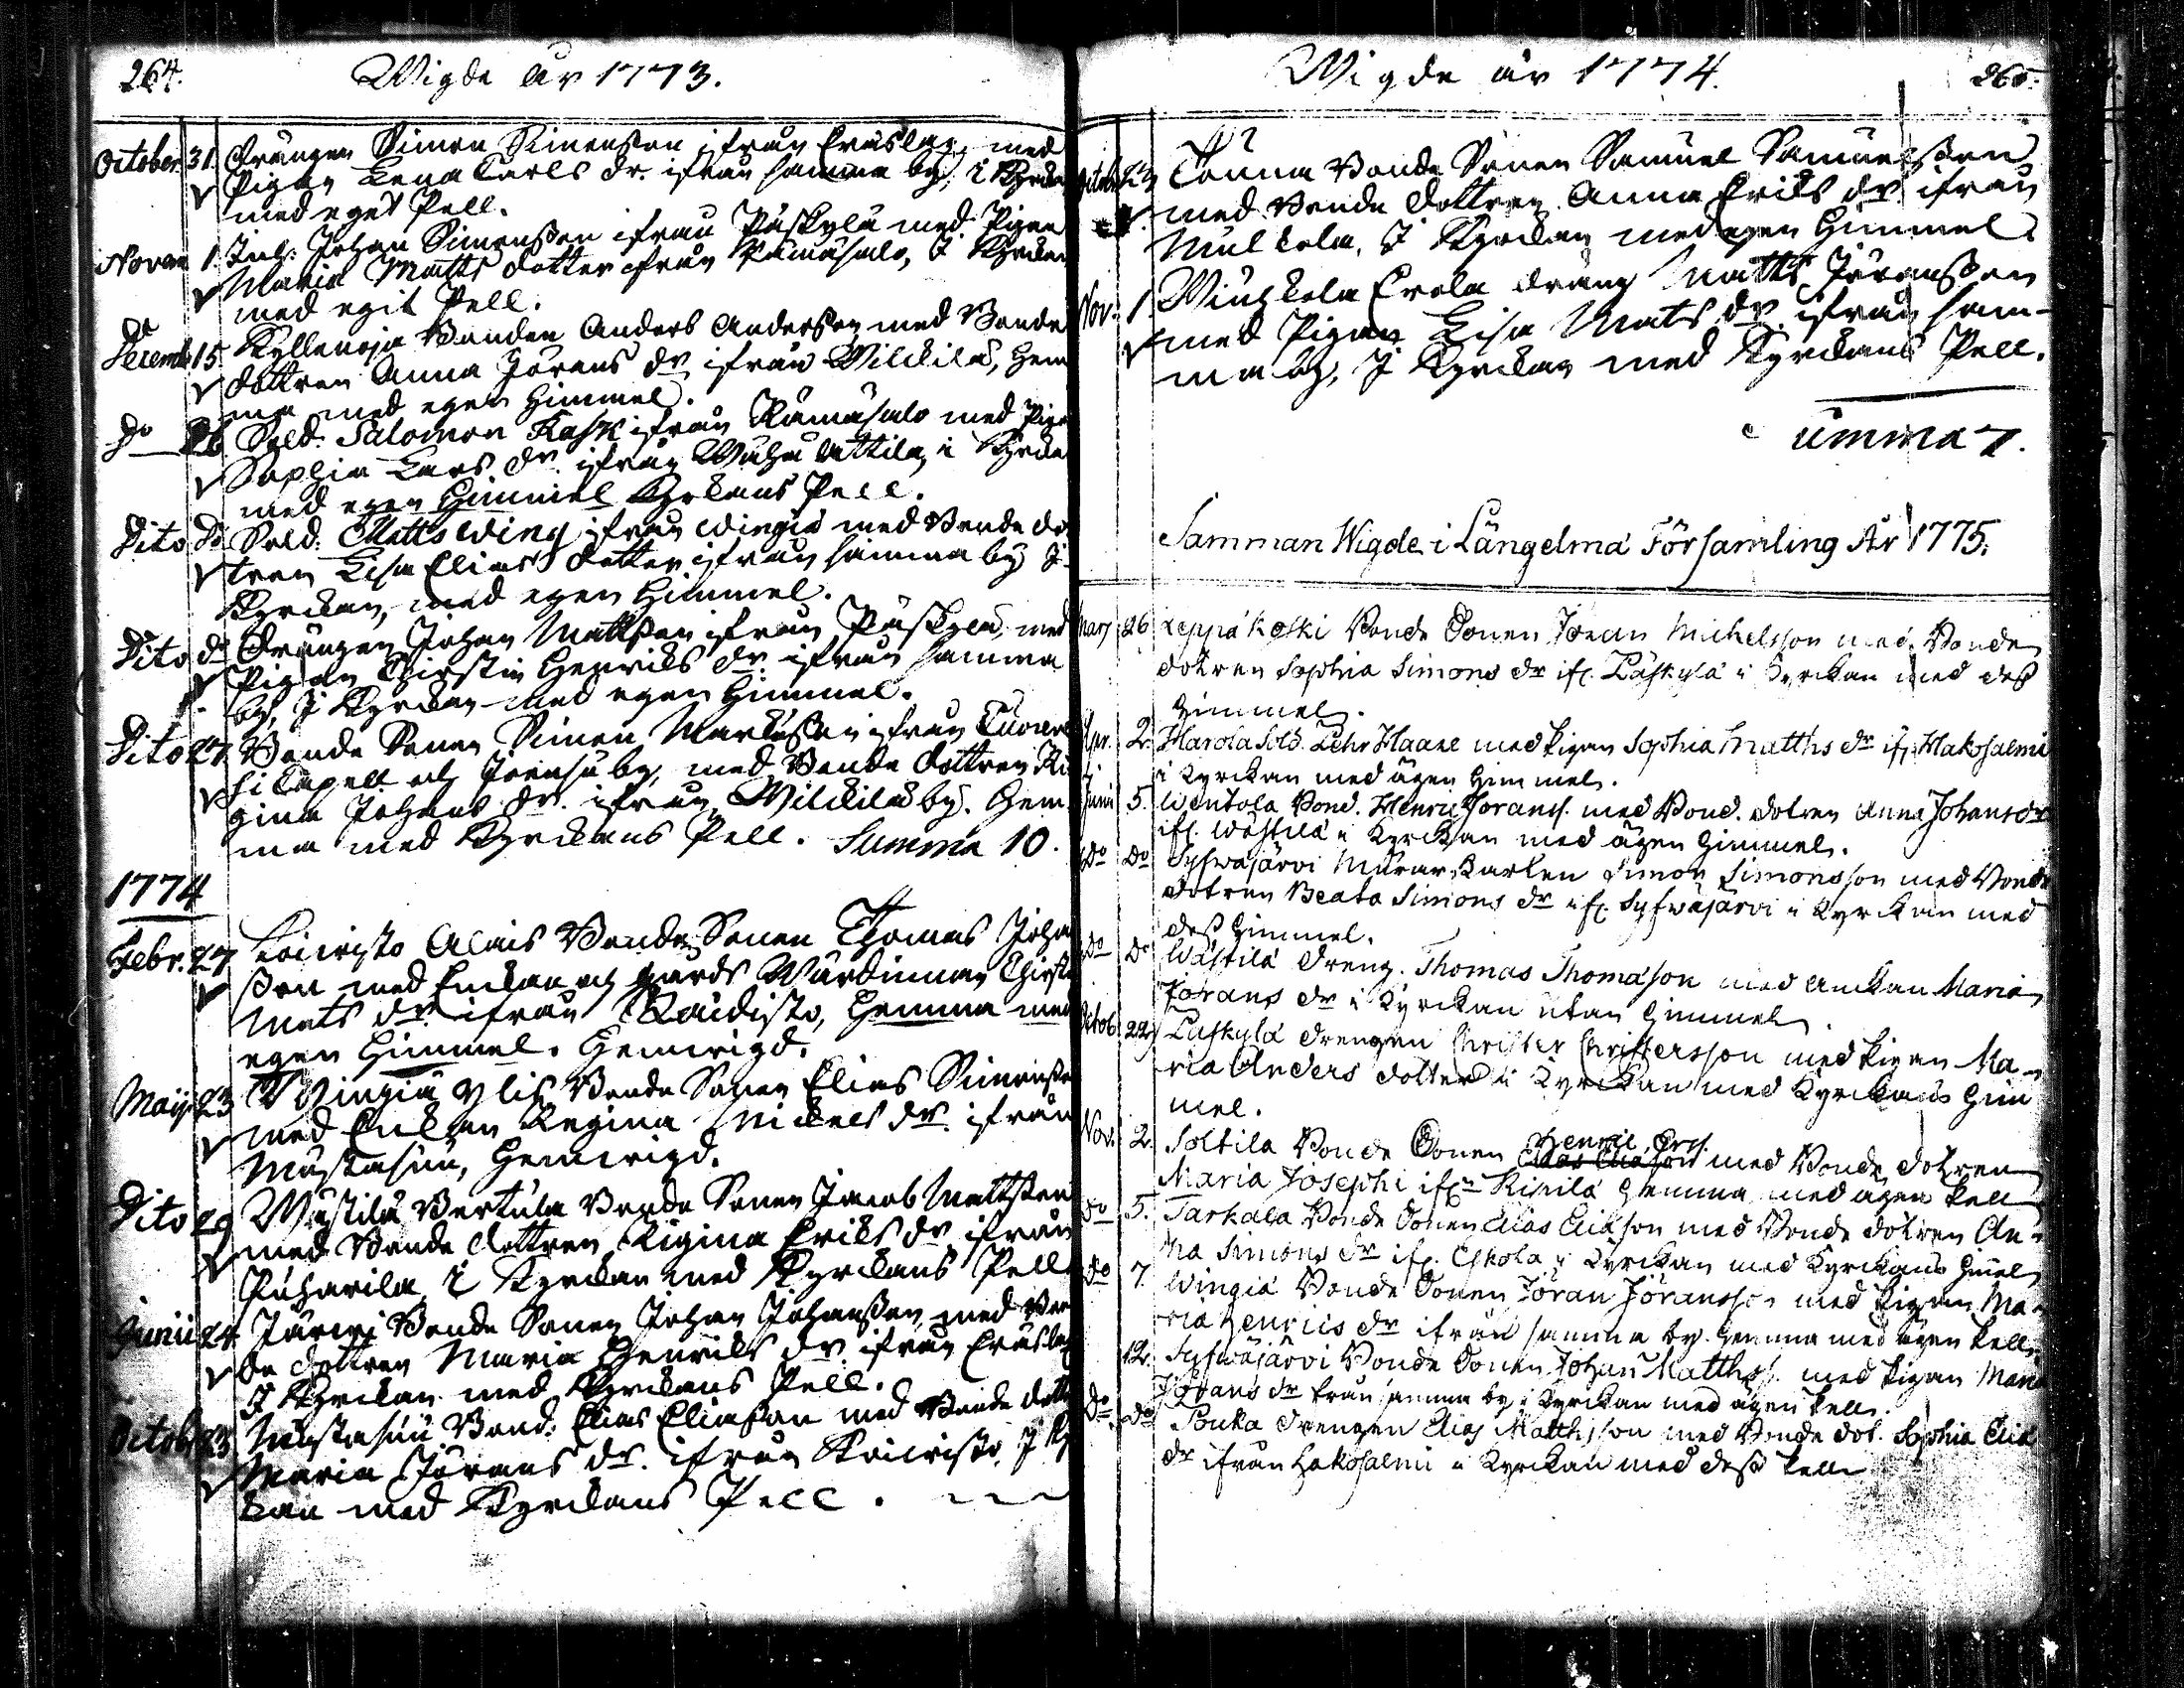 264.
Wigde åv 1773.
October 31. Drängen Simon Simonsson ifrån Eräslax med
Pigan Lena Carls dr. ifrån samma by, i Kyrckan
med eget Pell.
Novem 1. Inh: Johan Simonsson ifrån Päskylä med Pigan
Maria Matts dotter ifrån Rämäsalo, J Kyrckan
med egit Pell.
Decemb 15 Bonden Anders Andersson med Bonde
dottren Anna Jörans dr ifrån Wilckilä, hem
ma med egen Himmel.
do 26 Sold: Salomon Rask ifrån Rämäsalo med Piga
Sophia Lars dr. ifrån Attila, i Kyrcka
med egen Himmel Kyrckans Pell.
Dito do Sold. Matts Wing ifrån Wingiä med Bonde do
tren Lisa Elias dotter ifrån samma by J
Kyrckan, med egen Himmel.
Dito do Drängen Johan Mattsson ifrån Päskylä, med
Pigan Christin Henriks dr. ifrån samma
by, J Kyrckan med egen Himmel.
Dito 27 Bonde Sonen Simon Markusson ifrån
Capell och Joensu by, med Bonde dottren Re
gina Johans dr. ifrån Wilckilä by. Hem
ma med Kyrckans Pell. Summa 10.
1774
Febr. 27 Koiwisto Alais Bonde Sonen Thomas Joha
sson med Enckan och gårds Wärdinnan Christi
Mats dr ifrån Raidisto, Hemma med
egen Himmel. Hemwigd.
Maij 23 Wingiä Ylis Bonde Sonen Elias Simonsson
med Enckan Regina Mickels dr. ifrån
Mustasuu, Hemwigd.
Dito 29 Wästilä Bertula Bonde Sonen Jacob Mattsson
med Bonde dottren Rigina Eriks dr ifrån
Puharila, i Kyrckan med Kyrckans Pell
Junii 24 Järwi Bonde Sonen Johan Johansson med Bon
de dottren Maria Henriks dr. ifrån Eräslax
J Kyrckan med Kyrckans Pell.
Octobr 23 Mustasuu Bond: Elias Eliasson med Bonde dott
Maria Jörans dr. ifrån Koiwisto, J Ky
kan med Kyrckans Pell.
Wigde åv 1774.
265.
Octobr 23 Bonde Sonen Samuel Samuelsson
med Bonde dottren Anna Eriks dr ifrån
Mulkola, J Kyrckan med egen Himmel
Nov. 1 Erola dräng Matts Jöransson
med Pigan Lisa Mats dr ifrån sam-
ma by, J Kyrckan med Kyrckans Pell.
umma 7.
Samman Wigde i Längelmä Församling År 1775.
Marj 26 Leppäkoski Bonde Sonen Jöran Michelsson med Bonde
dotren Sophia Simons dr ifr. Päskylä i Kyrckan med dess
Himmel.
2. Harola Sold. Pehr Haane med Pigan Sophia Matths dr ifr. Hakosalmi
i Kyrckan med ägen Himmel.
Junii 5. Wentola Bond. Henric Jöranss. med Bond. dotren Anna Johans dr
ifr. Wästilä i Kyrckan med ägen Himmel.
do do Syswäjärvi Murar Karlen Simon Simonsson med Bonde
dotren Beata Simons dr ifr. Syswäjärvi i Kyrckan med
dess Himmel.
do do Wästilä dreng. Thomas Thomasson med änckan Maria
Jörans dr i Kyrckan utan Himmel.
Octob 22 Päskylä drengen Christer Christersson med Pigan Ma-
ria Anders dotter i Kyrckan med Kyrckans Him
mel.
Nov. 2. Soltila Bonde Sonen Henric Ers. med Bonde dotren
Maria Josephi ifrn Hemma med ägen Pell
do 5. Tarkala Bonde Sonen Elias Eliæson med Bonde dotren An-
na Simons dr ifr. Eskola i Kyrckan med Kyrckans Himel
do 7. Wingiä Bonde Sonen Jöran Jöransson med Pigan Ma-
ria Henrics dr ifrån samma by. Hemma med ägen Pell.
12. Syswäjärvi Bonde Sonen Johan Matthss. med Pigan Maria
Jörans dr från samma by i Kyrckan med ägen Pell.
do do Pouka drengen Elias Matthsson med Bonde dot. Sophia Eliæ
dr ifrån Hakosalmi i Kyrckan med dess Pell